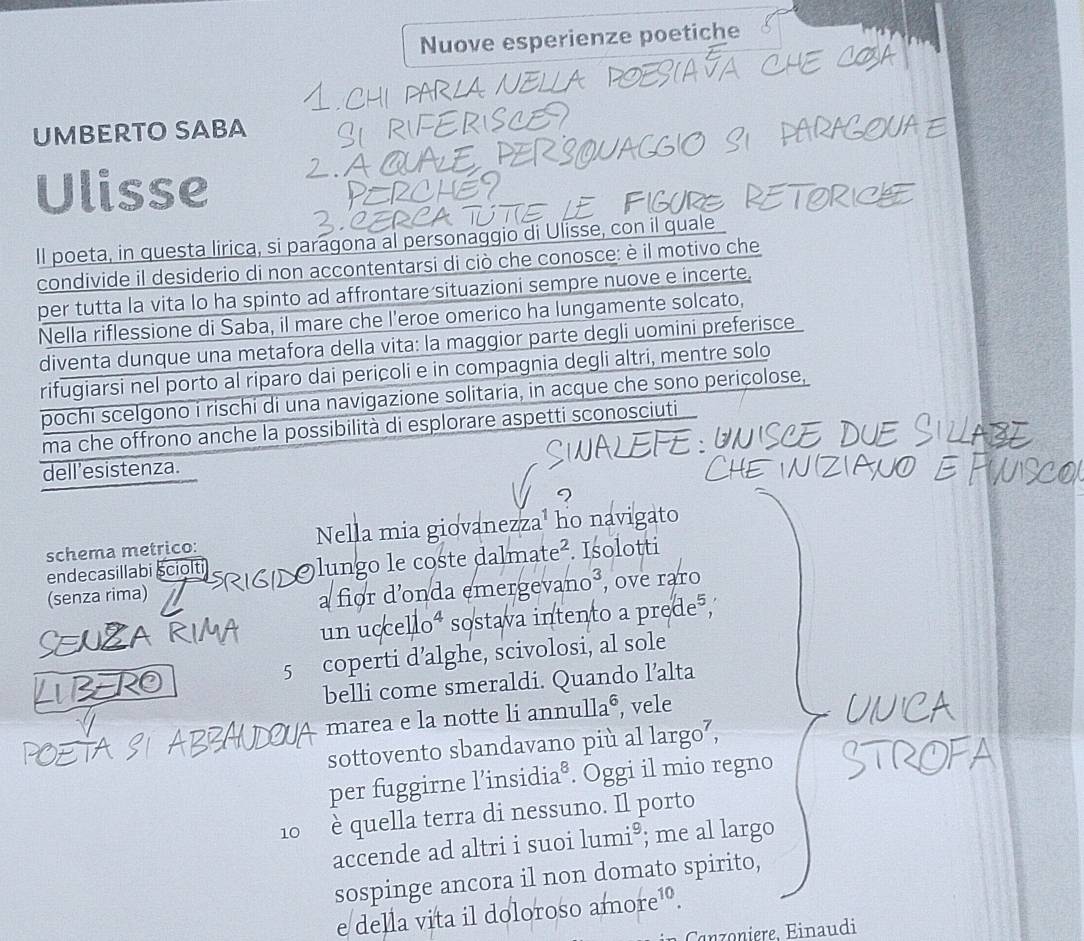 Nuove esperienze poetiche
1. CHI PARLA NELLA POESIA E A CHE COSA
SI RIFERISCE?
UMBERTO SABA
2. A QUALE PERSONAGGIO SI PARAGONA E
PERCHÉ?
Ulisse
3. CERCA TUTTE LE FIGURE RETORICHE
Il poeta, in questa lirica, si paragona al personaggio di Ulisse, con il quale
condivide il desiderio di non accontentarsi di ciò che conosce: è il motivo che
per tutta la vita lo ha spinto ad affrontare situazioni sempre nuove e incerte.
Nella riflessione di Saba, il mare che l'eroe omerico ha lungamente solcato,
diventa dunque una metafora della vita: la maggior parte degli uomini preferisce
rifugiarsi nel porto al riparo dai pericoli e in compagnia degli altri, mentre solo
pochi scelgono i rischi di una navigazione solitaria, in acque che sono pericolose,
ma che offrono anche la possibilità di esplorare aspetti sconosciuti
dell'esistenza.
SINALEFE: UNISCE DUE SILLABE
CHE INIZIANO E FINISCO
?
schema metrico:
endecasillabi sciolti
(senza rima)
RIGIDO
SENZA RIMA
LIBERO
POETA SI ABBANDONA
Nella mia giovanezza¹ ho navigato
lungo le coste dalmate². Isolotti
a fior d'onda emergevano³, ove raro
un uccello⁴ sostava intento a prede⁵,
5 coperti d'alghe, scivolosi, al sole
belli come smeraldi. Quando l'alta
marea e la notte li annulla⁶, vele
sottovento sbandavano più al largo⁷,
per fuggirne l'insidia⁸. Oggi il mio regno
10 è quella terra di nessuno. Il porto
accende ad altri i suoi lumi⁹; me al largo
sospinge ancora il non domato spirito,
e della vita il doloroso amore¹⁰.
UNICA
STROFA
in Canzoniere, Einaudi